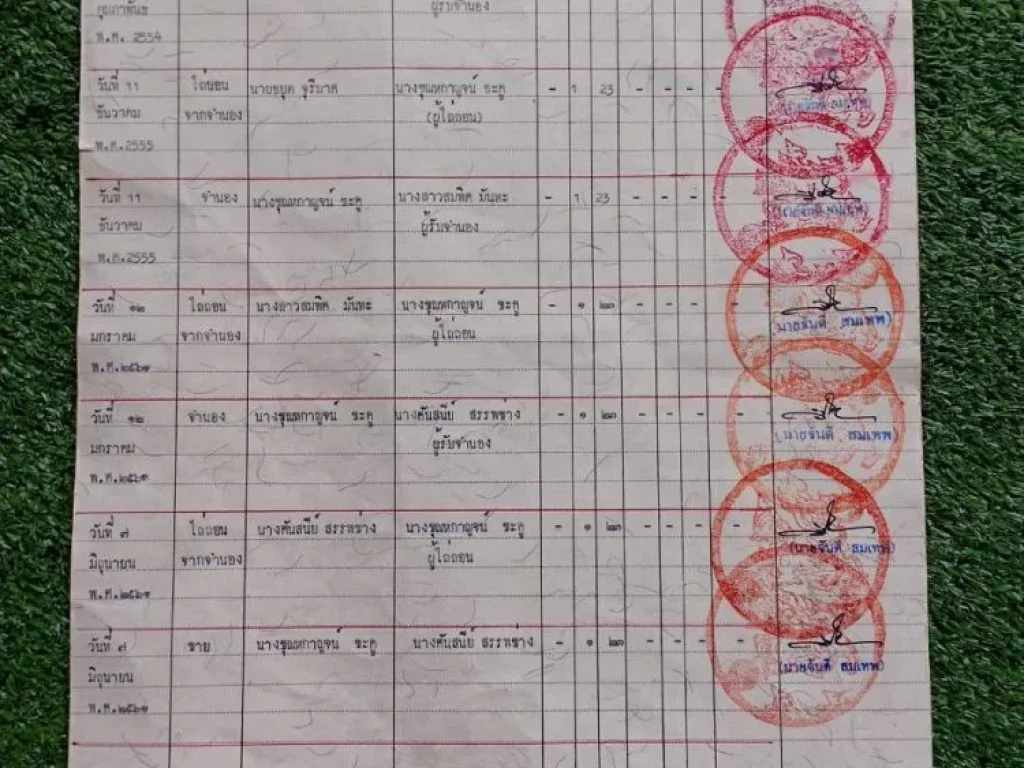 กุมภาพันธ์ ผู้รับจำนอง
พ.ศ. 2554
วันที่ 11 ไถ่ถอน นายธยุต จุริมาศ นางชุณหกาญจน์ ชะคู - 1 23 - - - -
ธันวาคม จากจำนอง (ผู้ไถ่ถอน)
พ.ศ.2555
วันที่ 11 จำนอง นางชุณหกาญจน์ ชะคู นางสาวสมพิศ มันทะ - 1 23 - - - -
ธันวาคม ผู้รับจำนอง
พ.ศ.2555
วันที่ ๑๒ ไถ่ถอน นางสาวสมพิศ มันทะ นางชุณหกาญจน์ ชะคู - ๑ ๒๓ - - - -
มกราคม จากจำนอง ผู้ไถ่ถอน (นายจันดี สมเทพ)
พ.ศ.๒๕๖๑
วันที่ ๑๒ จำนอง นางชุณหกาญจน์ ชะคู นางคันสนีย์ สรรพช่าง - ๑ ๒๓ - - - -
มกราคม ผู้รับจำนอง (นายจันดี สมเทพ)
พ.ศ.๒๕๖๑
วันที่ ๗ ไถ่ถอน นางคันสนีย์ สรรพช่าง นางชุณหกาญจน์ ชะคู - ๑ ๒๓ - - - -
มิถุนายน จากจำนอง ผู้ไถ่ถอน (นายจันดี สมเทพ)
พ.ศ.๒๕๖๑
วันที่ ๗ ขาย นางชุณหกาญจน์ ชะคู นางคันสนีย์ สรรพช่าง - ๑ ๒๓ - - - -
มิถุนายน (นายจันดี สมเทพ)
พ.ศ.๒๕๖๑